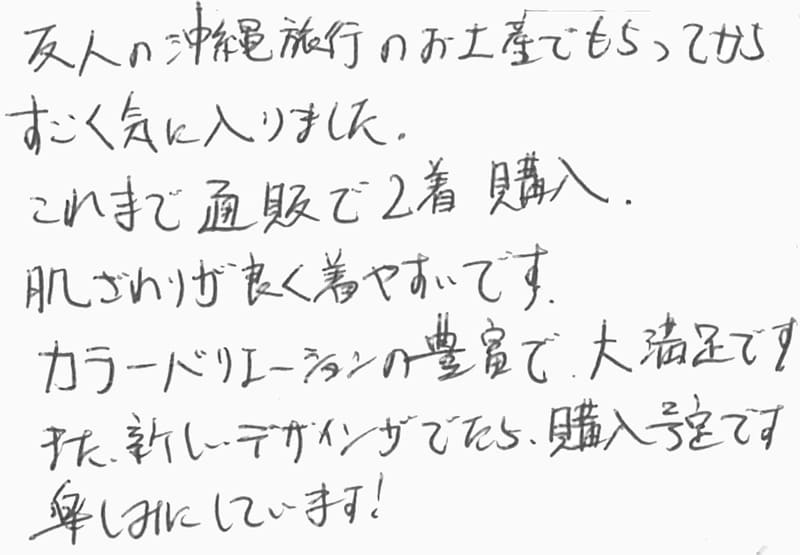 友人の沖縄旅行のお土産でもらってから
すごく気に入りました。
これまで通販で2着 購入.
肌ざわりが良く着やすいです.
カラーバリエーションの豊富で、大満足です
また、新しいデザインがでたら、購入予定です
楽しみにしています!